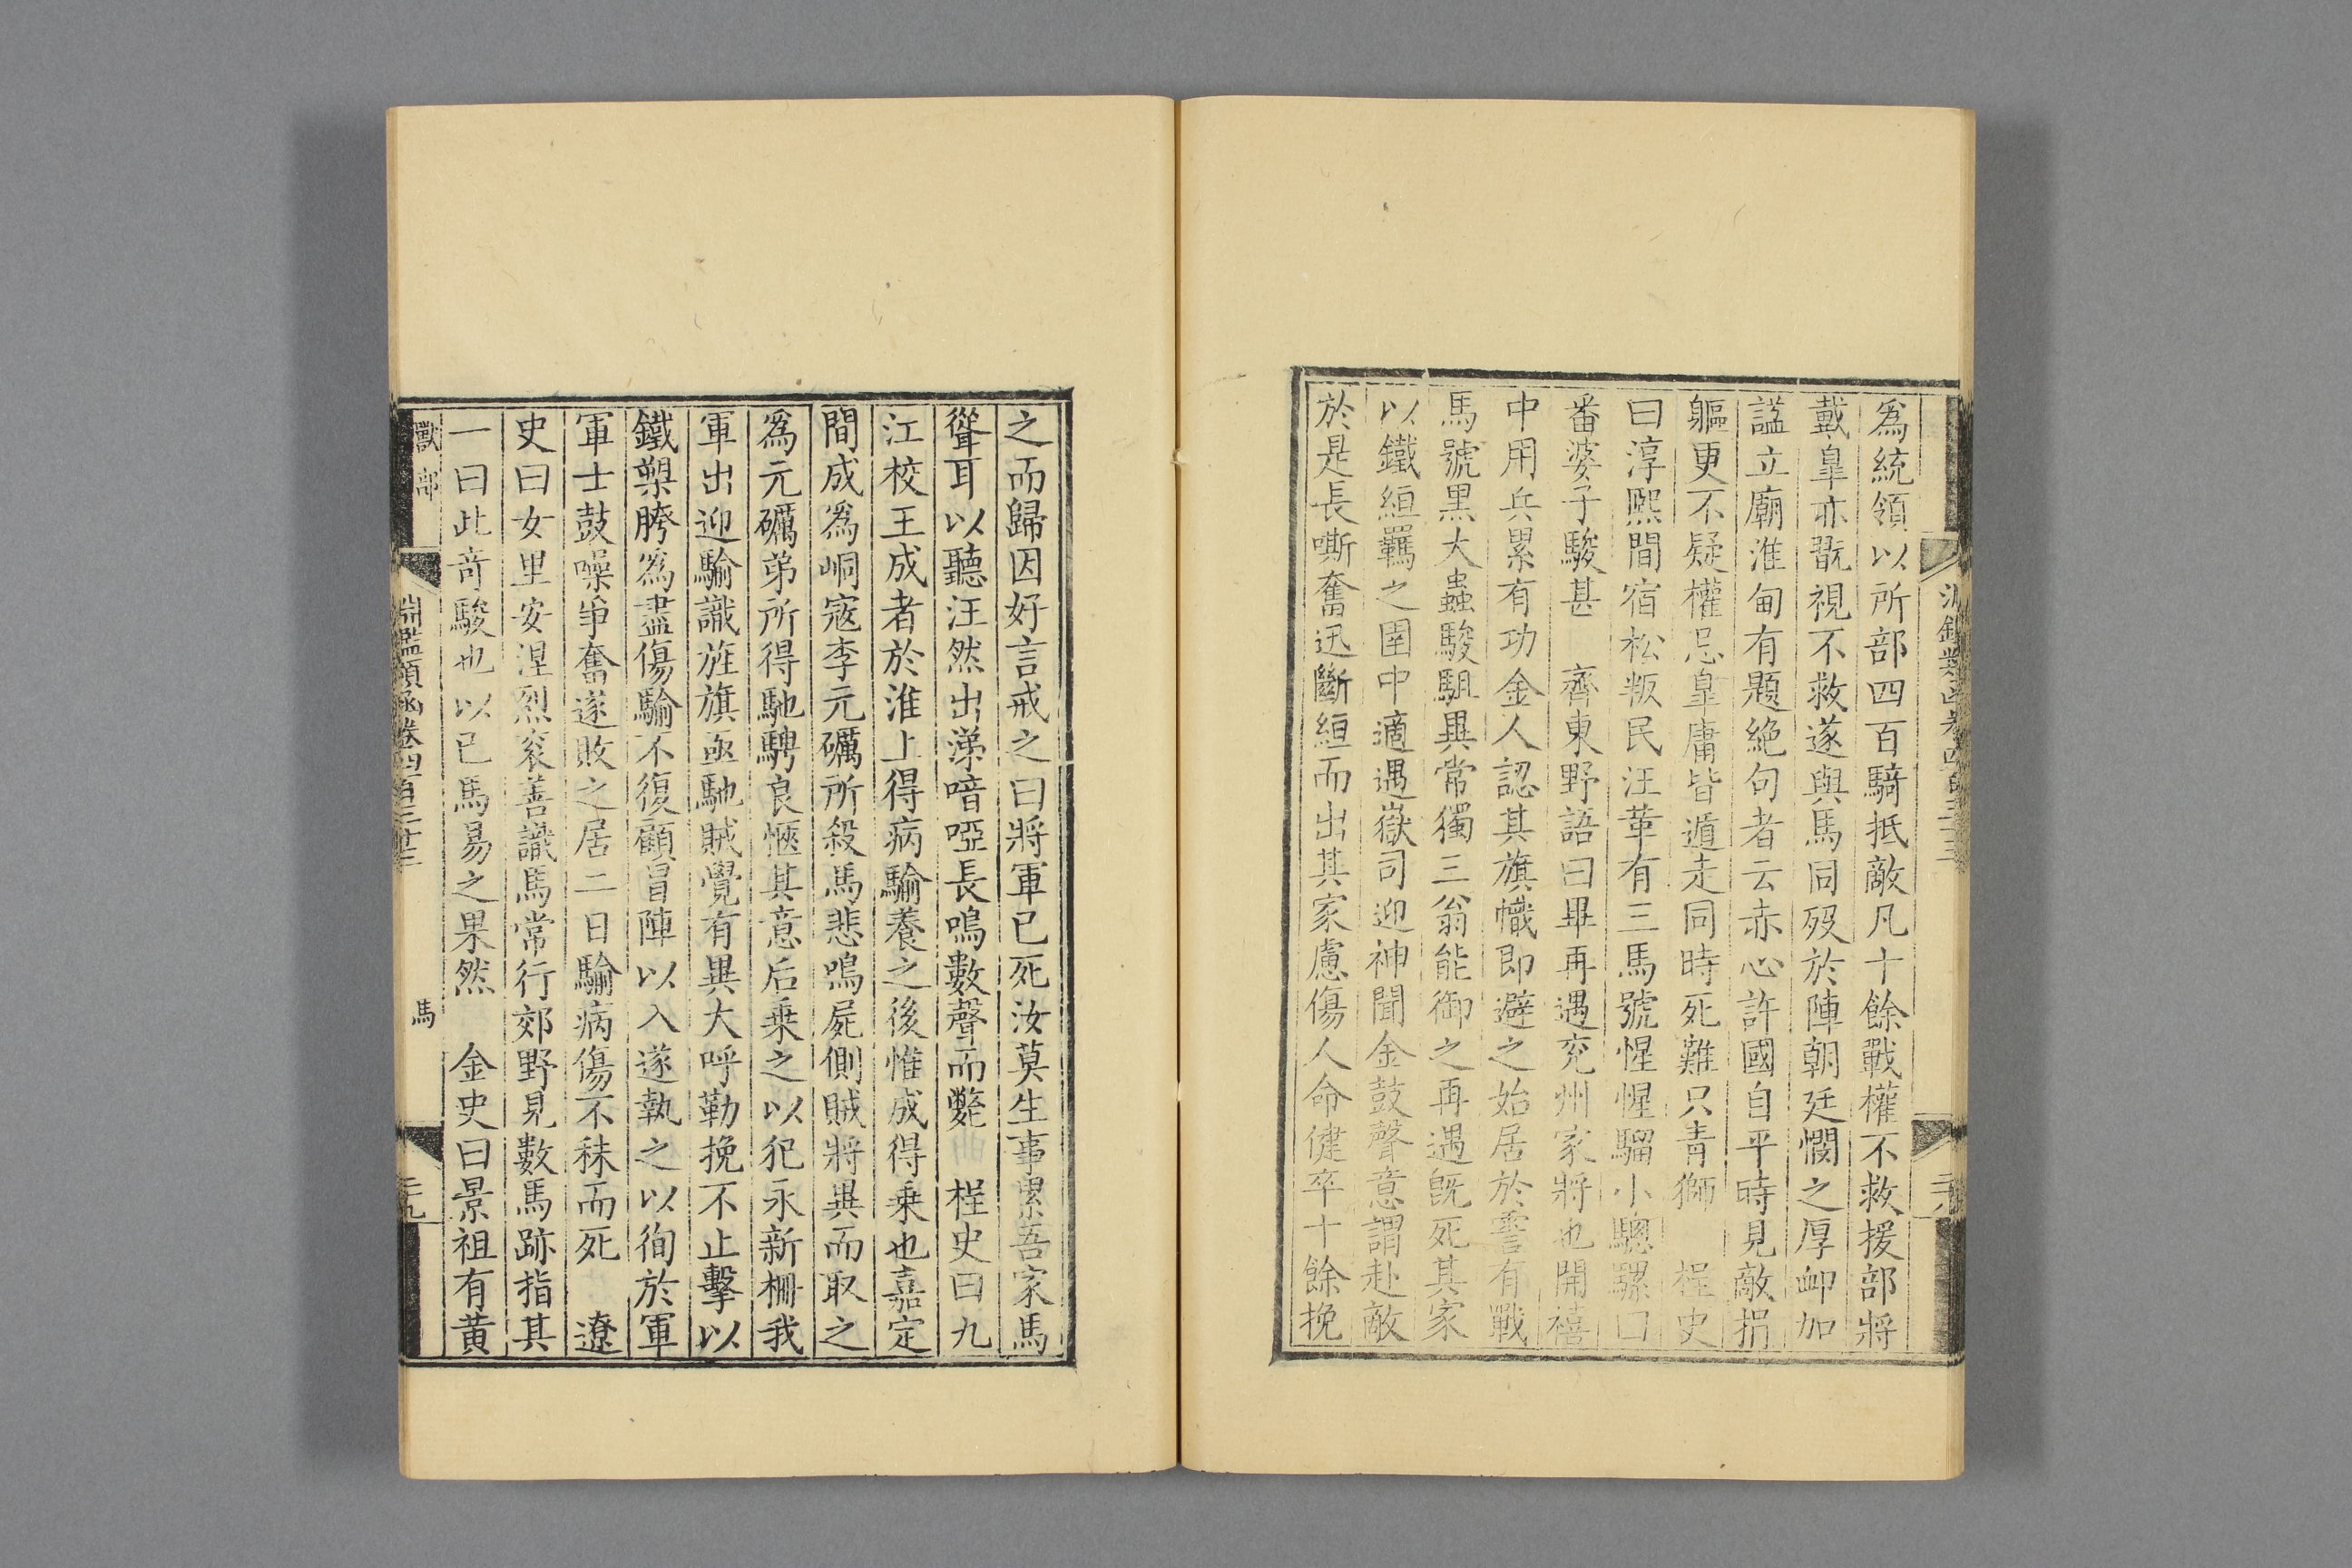 爲統領以所部四百騎抵敵凡十餘戰權不救援部將
戴皐亦翫視不救遂與馬同歿於陣朝廷憫之厚卹加
諡立廟淮甸有題絶句者云赤心許國自平時見敵捐
軀更不疑權忌皐庸皆遁走同時死難只青獅　桯史
曰淳熙間宿松叛民汪革有三馬號惺惺騮小驄騾曰
番婆子駿甚　齊東野語曰畢再遇兖州家將也開禧
中用兵累有功金人認其旗幟即避之始居於霅有戰
馬號黒大蟲駿駔異常獨三翁能御之再遇旣死其家
以鐵絙羈之圉中適遇嶽司迎神聞金鼓聲意謂赴敵
於是長嘶奮迅斷絙而出其家慮傷人命健卒十餘挽
之而歸因好言戒之曰將軍已死汝莫生事累吾家馬
聳耳以聽汪然出涕喑啞長鳴數聲而斃　桯史曰九
江校王成者於淮上得病騟養之後惟成得乗也嘉定
間成爲峒宼李元礪所殺馬悲鳴屍側賊將異而取之
爲元礪弟所得馳騁良愜其意后乗之以犯永新柵我
軍出迎騟識旌旗亟馳賊覺有異大呼勒挽不止擊以
鐵槊胯爲盡傷騟不復顧冒陣以入遂執之以徇於軍
軍士鼓噪爭奮遂敗之居二日騟病傷不秣而死　遼
史曰女里安涅烈衮善識馬常行郊野見數馬跡指其
一曰此竒駿也以已馬易之果然　金史曰景祖有黄
獸部
淵鑑類函卷四百三十三
馬
二十九